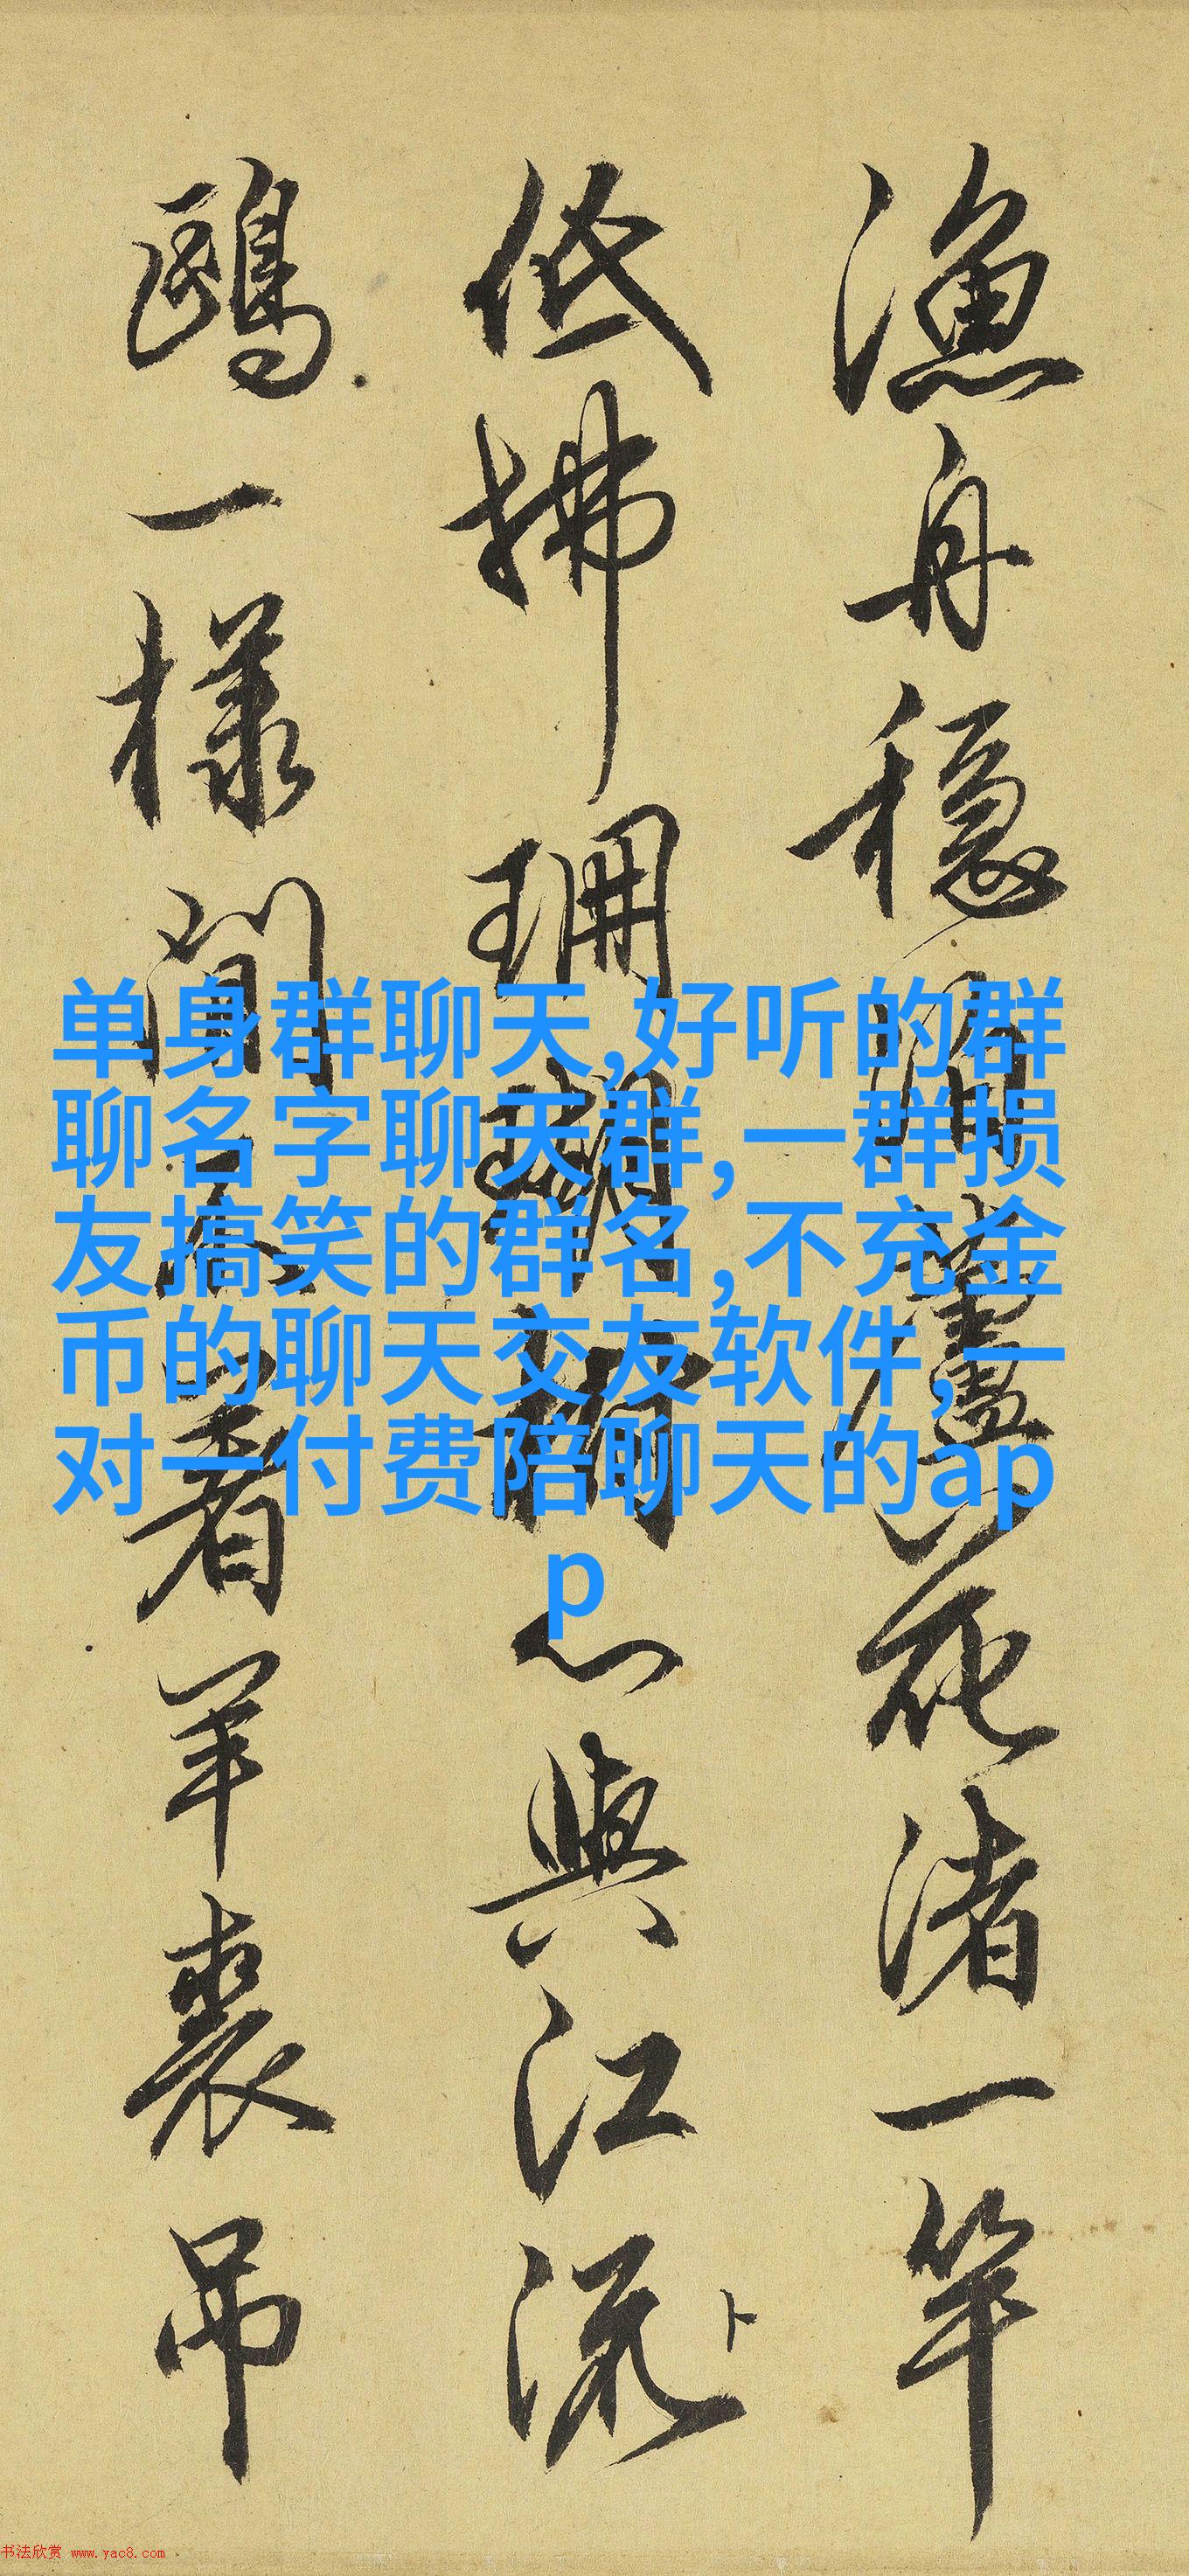 漁舟穩蘆花渚一竿
低拂珊瑚心與江流
卜
鷗一樣閒著羊裘吊
单身群聊天,好听的群
聊名字聊天群,一群损
友搞笑的群名,不充金
币的聊天交友软件,一
对一付费陪聊天的ap
p
书法欣赏 www.yac8.com